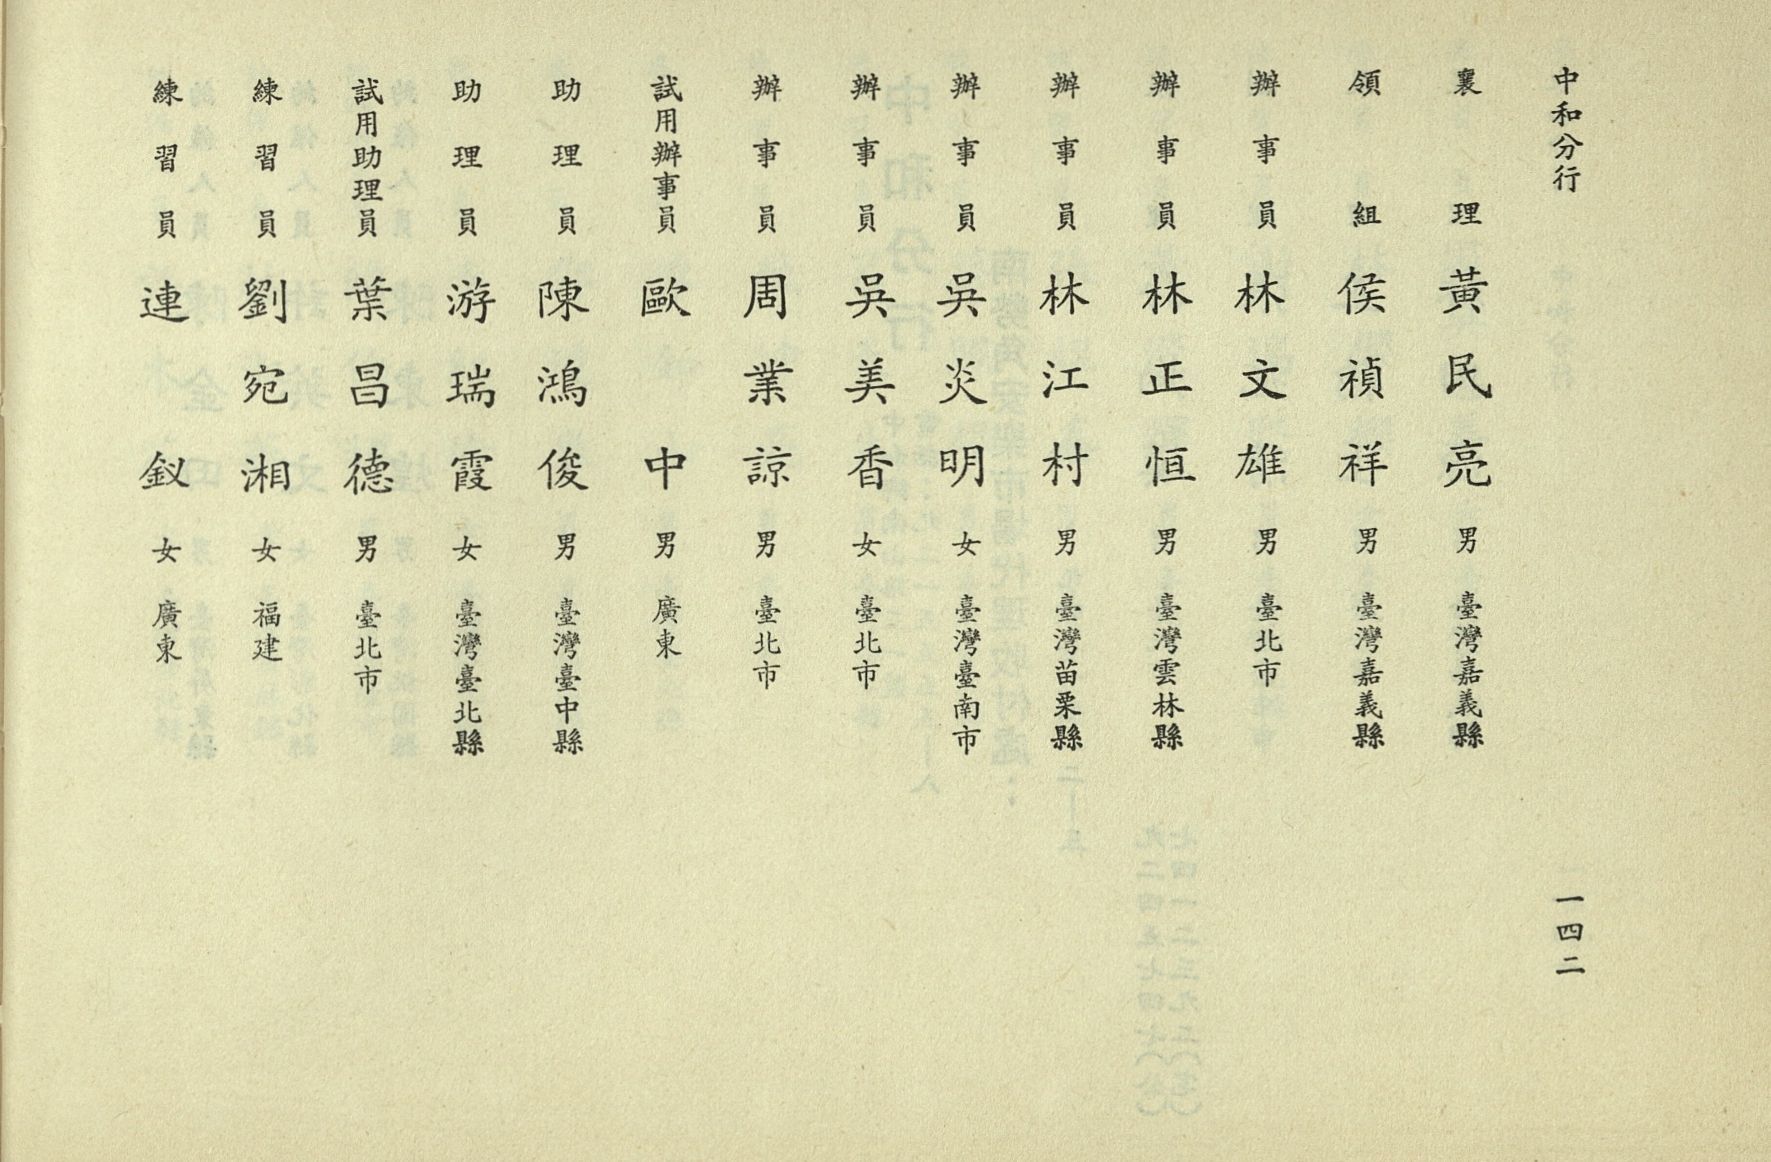 中和分行
一四二
襄理 黃民亮 男 臺灣嘉義縣
領組 侯禎祥 男 臺灣嘉義縣
辦事員 林文雄 男 臺北市
辦事員 林正恒 男 臺灣雲林縣
辦事員 林江村 男 臺灣苗栗縣
辦事員 吳炎明 女 臺灣臺南市
辦事員 吳美香 女 臺北市
辦事員 周業諒 男 臺北市
試用辦事員 歐中 男 廣東
助理員 陳鴻俊 男 臺灣臺中縣
助理員 游瑞霞 女 臺灣臺北縣
試用助理員 葉昌德 男 臺北市
練習員 劉宛湘 女 福建
練習員 連釵 女 廣東